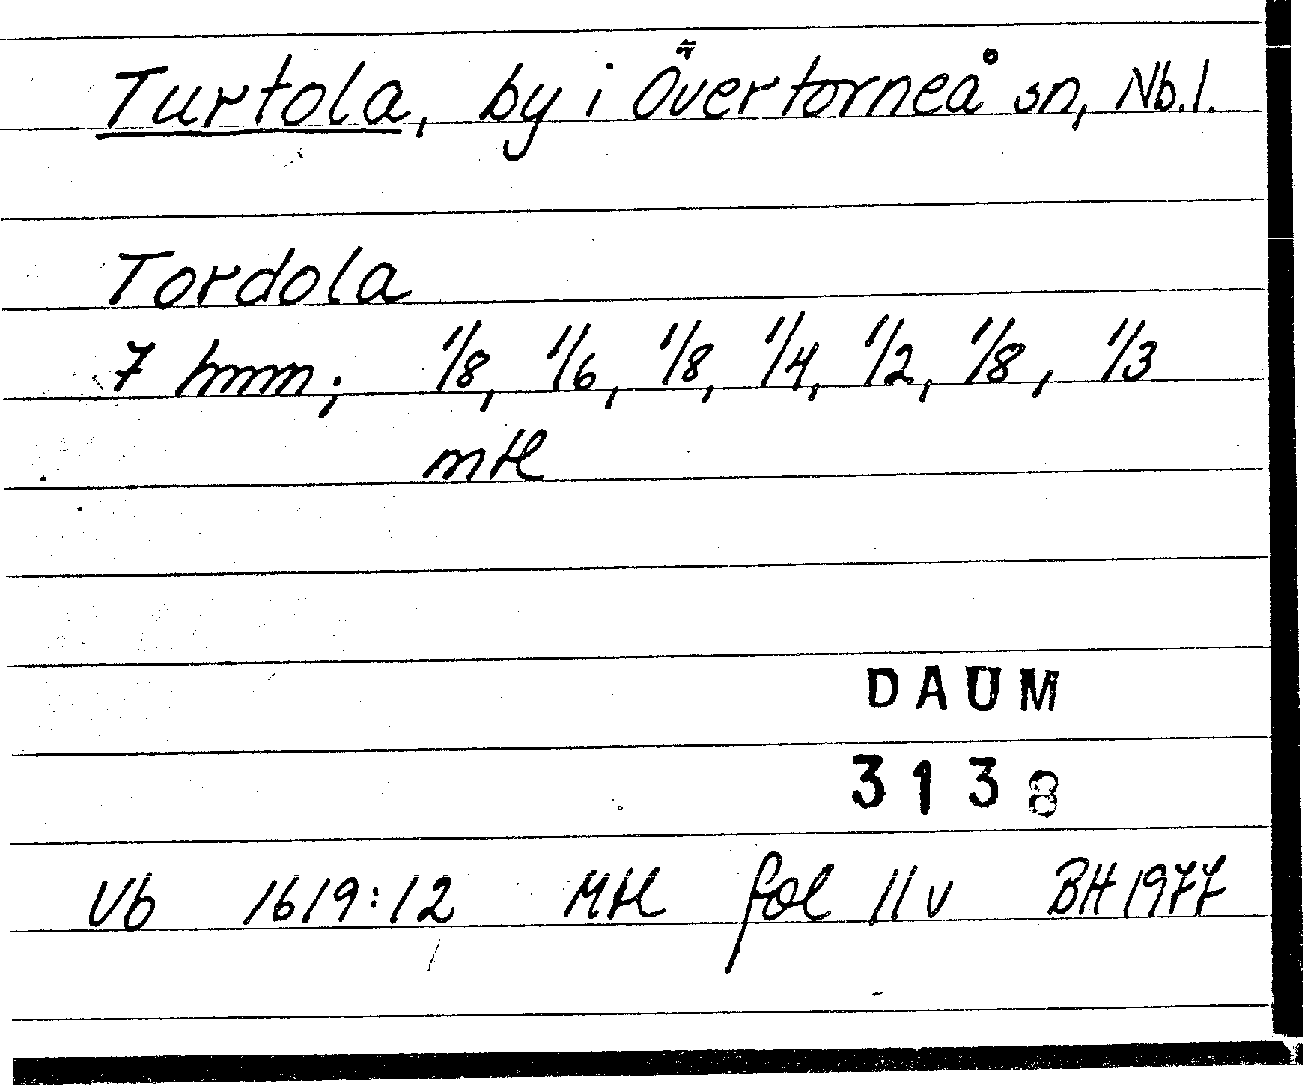 Turtola, by i Övertorneå sn, Nb.l.
Tordola
7 hmm; 1/8, 1/6, 1/8, 1/4, 1/2, 1/8, 1/3
mtl
DAUM
3138
Vb 1619:12 Mtl fol 11v BH 1977